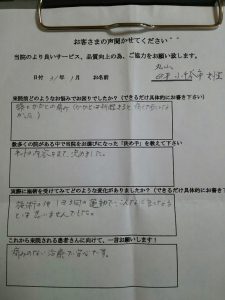 お客さまの声聞かせてください
当院のより良いサービス、品質向上の為、ご協力をお願い致します。
日付 31年 1月 お名前
来院前どのようなお悩みでお困りでしたか?(できるだけ具体的にお書き下さい)
腰とかかとの痛み
数多くの院がある中で当院をお選びになった「決め手」を教えて下さい
ネットの内容をみて決めました。
実際に施術を受けてみてどのような変化がありましたか?(できるだけ具体的にお書き下
施術の他1日3回の運動で
とは思いませんでした。
これから来院される患者さんに向けて、一言お願いします!
痛みのない治療で安心です。